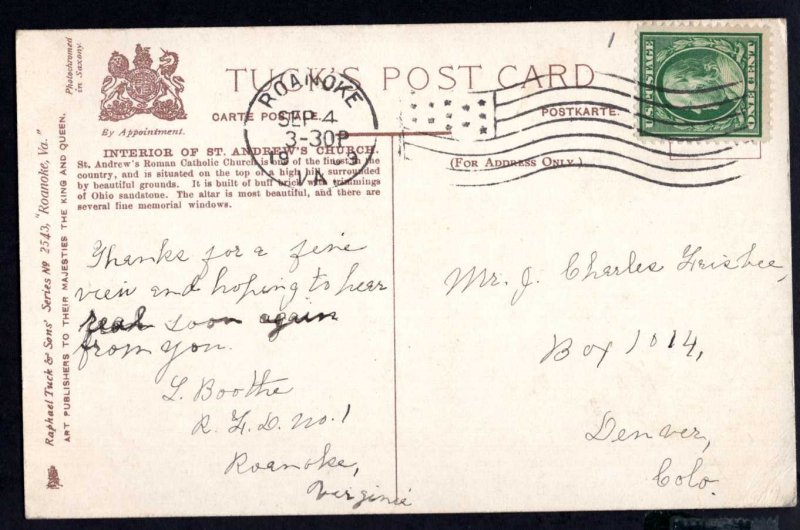 Photochromed
in Saxony.
By Appointment.
TUCK'S POST CARD
CARTE POSTALE.
POSTKARTE.
(FOR ADDRESS ONLY.)
INTERIOR OF ST. ANDREW'S CHURCH.
St. Andrew's Roman Catholic Church is one of the finest in the
country, and is situated on the top of a high hill, surrounded
by beautiful grounds. It is built of buff brick with trimmings
of Ohio sandstone. The altar is most beautiful, and there are
several fine memorial windows.
Raphael Tuck & Sons' Series Nº 2543, "Roanoke, Va."
ART PUBLISHERS TO THEIR MAJESTIES THE KING AND QUEEN.
ROANOKE
SEP 4
3-30P
VA.
U.S. POSTAGE
ONE CENT
Thanks for a fine
view and hoping to hear
soon again
from you.
L. Boothe
R.F.D. No. 1
Roanoke,
Virginia
Mr. J. Charles Feisbee,
Box 1014,
Denver,
Colo.